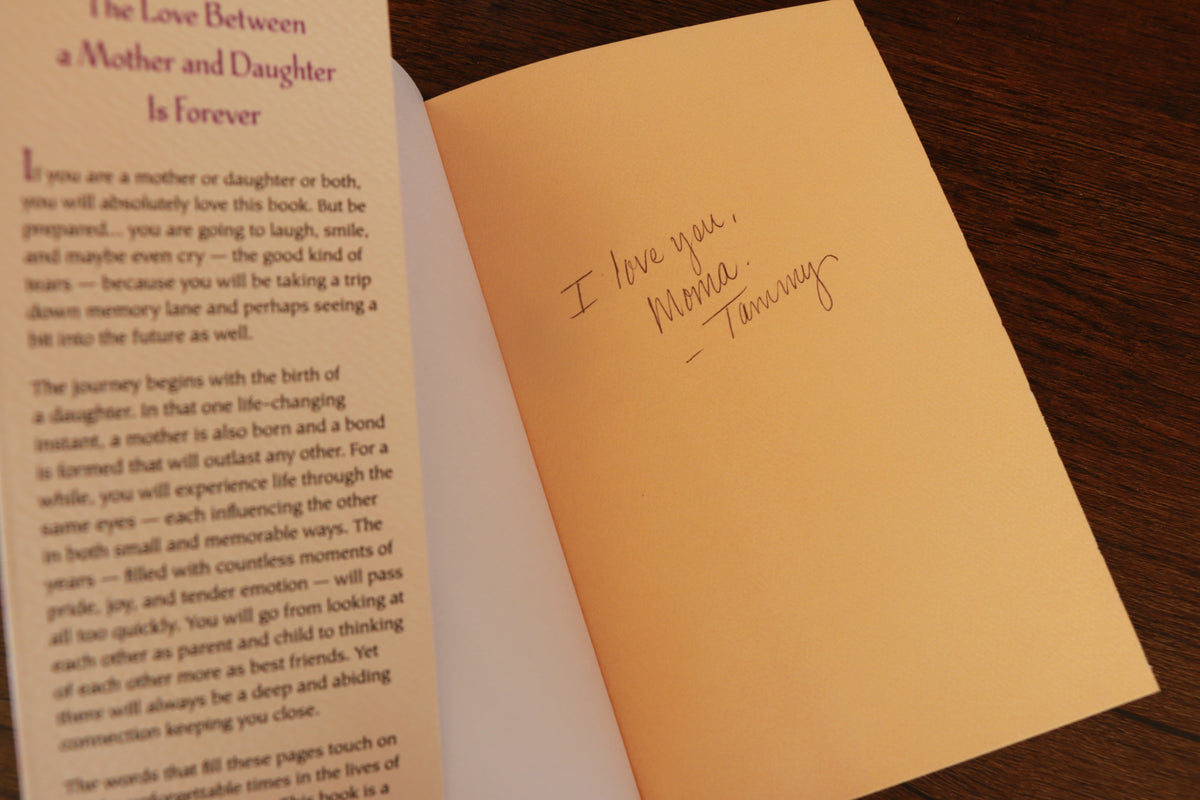 The Love Between
a Mother and Daughter
Is Forever
If you are a mother or daughter or both,
you will absolutely love this book. But be
prepared... you are going to laugh, smile,
and maybe even cry — the good kind of
tears — because you will be taking a trip
down memory lane and perhaps seeing a
bit into the future as well.
The journey begins with the birth of
a daughter. In that one life-changing
instant, a mother is also born and a bond
is formed that will outlast any other. For a
while, you will experience life through the
same eyes — each influencing the other
in both small and memorable ways. The
years — filled with countless moments of
pride, joy, and tender emotion — will pass
all too quickly. You will go from looking at
each other as parent and child to thinking
of each other more as best friends. Yet
there will always be a deep and abiding
connection keeping you close.
The words that fill these pages touch on
unforgettable times in the lives of
This book is a
I love you,
Moma.
- Tammy